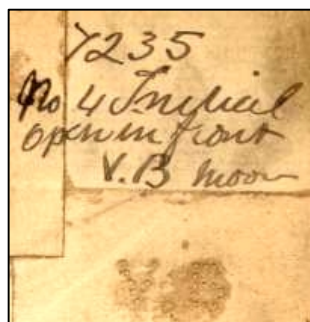 7235
No 4 Initial
open in front
V.B Moon